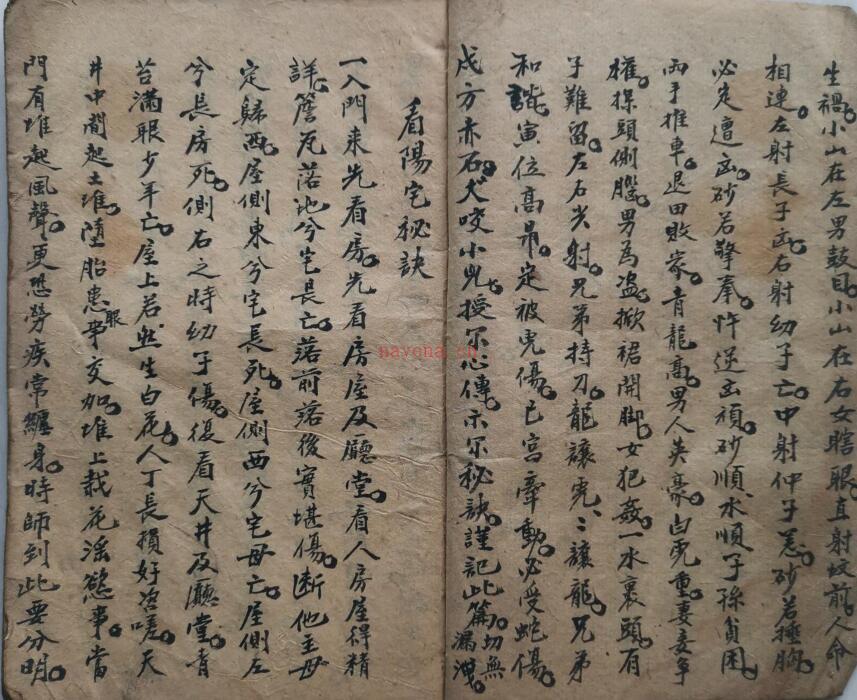 生禍小山在左男鼓目小山在右女瞎眼直射墳前人命
相連左射長子凶右射幼子亡中射仲子惡砂若搥胸
必定遭凶砂若擎拳忤逆凶頑砂順水順子孫貧困
兩手推車退田敗家青龍高男人英豪白虎重妻妾爭
權探頭側腦男為盗掀裙開脚女犯姦一水裹頭有
子難留左右尖射兄弟持刀龍讓虎〻讓龍兄弟
和諧寅位高昂定被虎傷巳宮牽動必受蛇傷
戌方赤石犬咬小兒授尔心傳示尔秘訣謹記此篇切無漏洩
看陽宅秘訣
一入門来先看房先看房屋及廳堂看人房屋得精
詳簷瓦落地兮宅長亡落前落後實堪傷断他主母
定歸西屋側東兮宅長死屋側西兮宅母亡屋側左
兮長房死側右之時幼子傷復看天井及廳堂青
苔滿眼少年亡屋上若然生白花人丁長損好咨嗟天
井中間起土堆墮胎患眼事交加堆上栽花淫慾事當
門有堆起風聲更恐勞疾常纏身時師到此要分明
nayona.cn